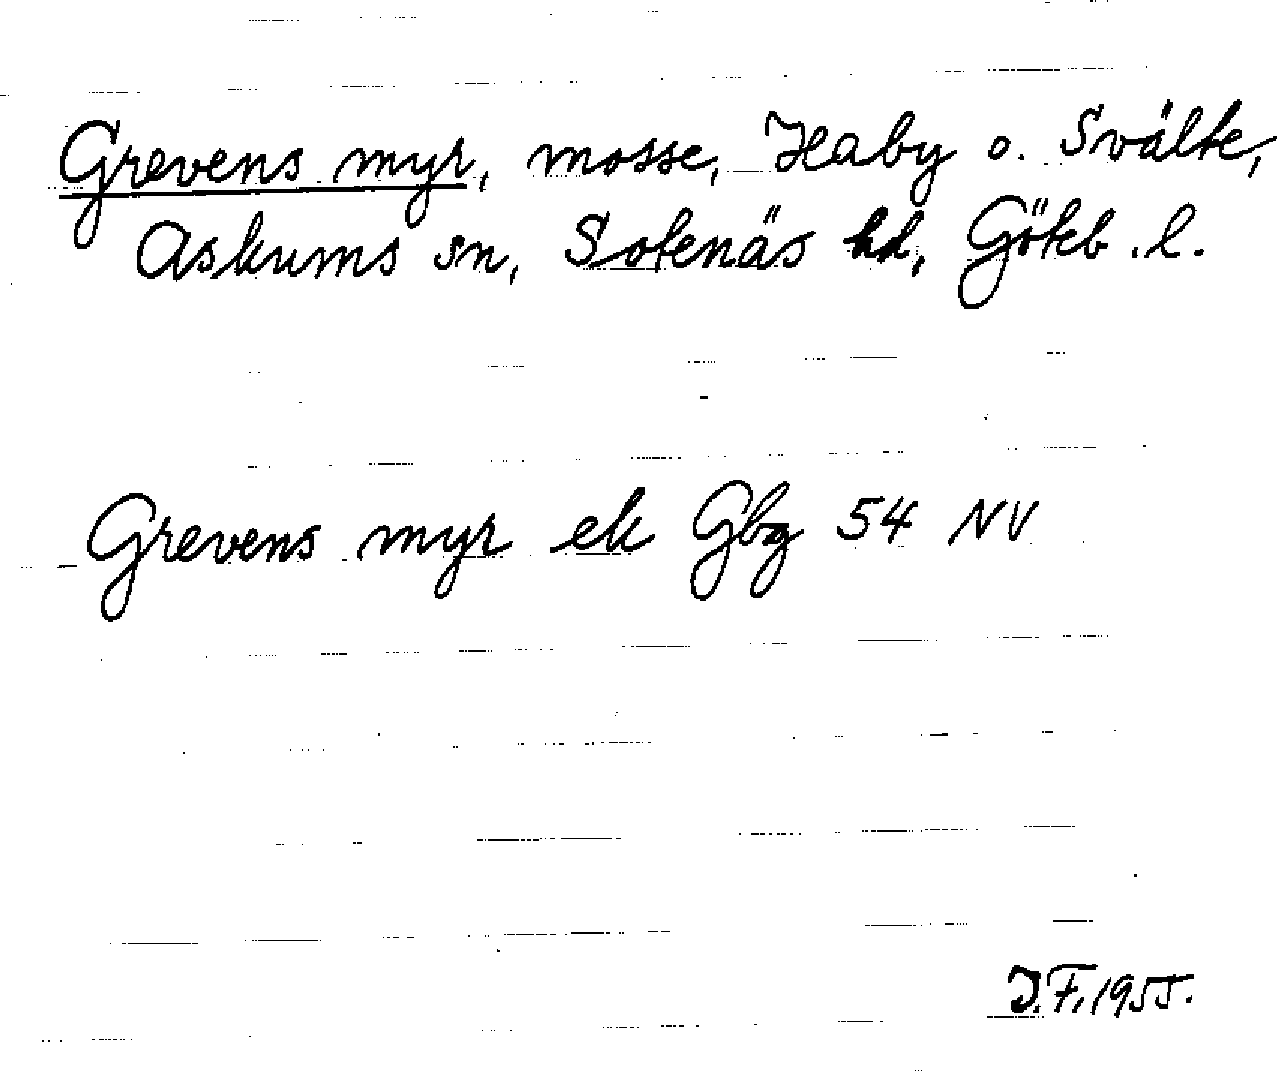 Grevens myr, mosse, Haby o. Svälte,
Askums sn, Sotenäs hd, Götëb. l.
Grevens myr ek Gbg 54 NV
J.F. 1955.